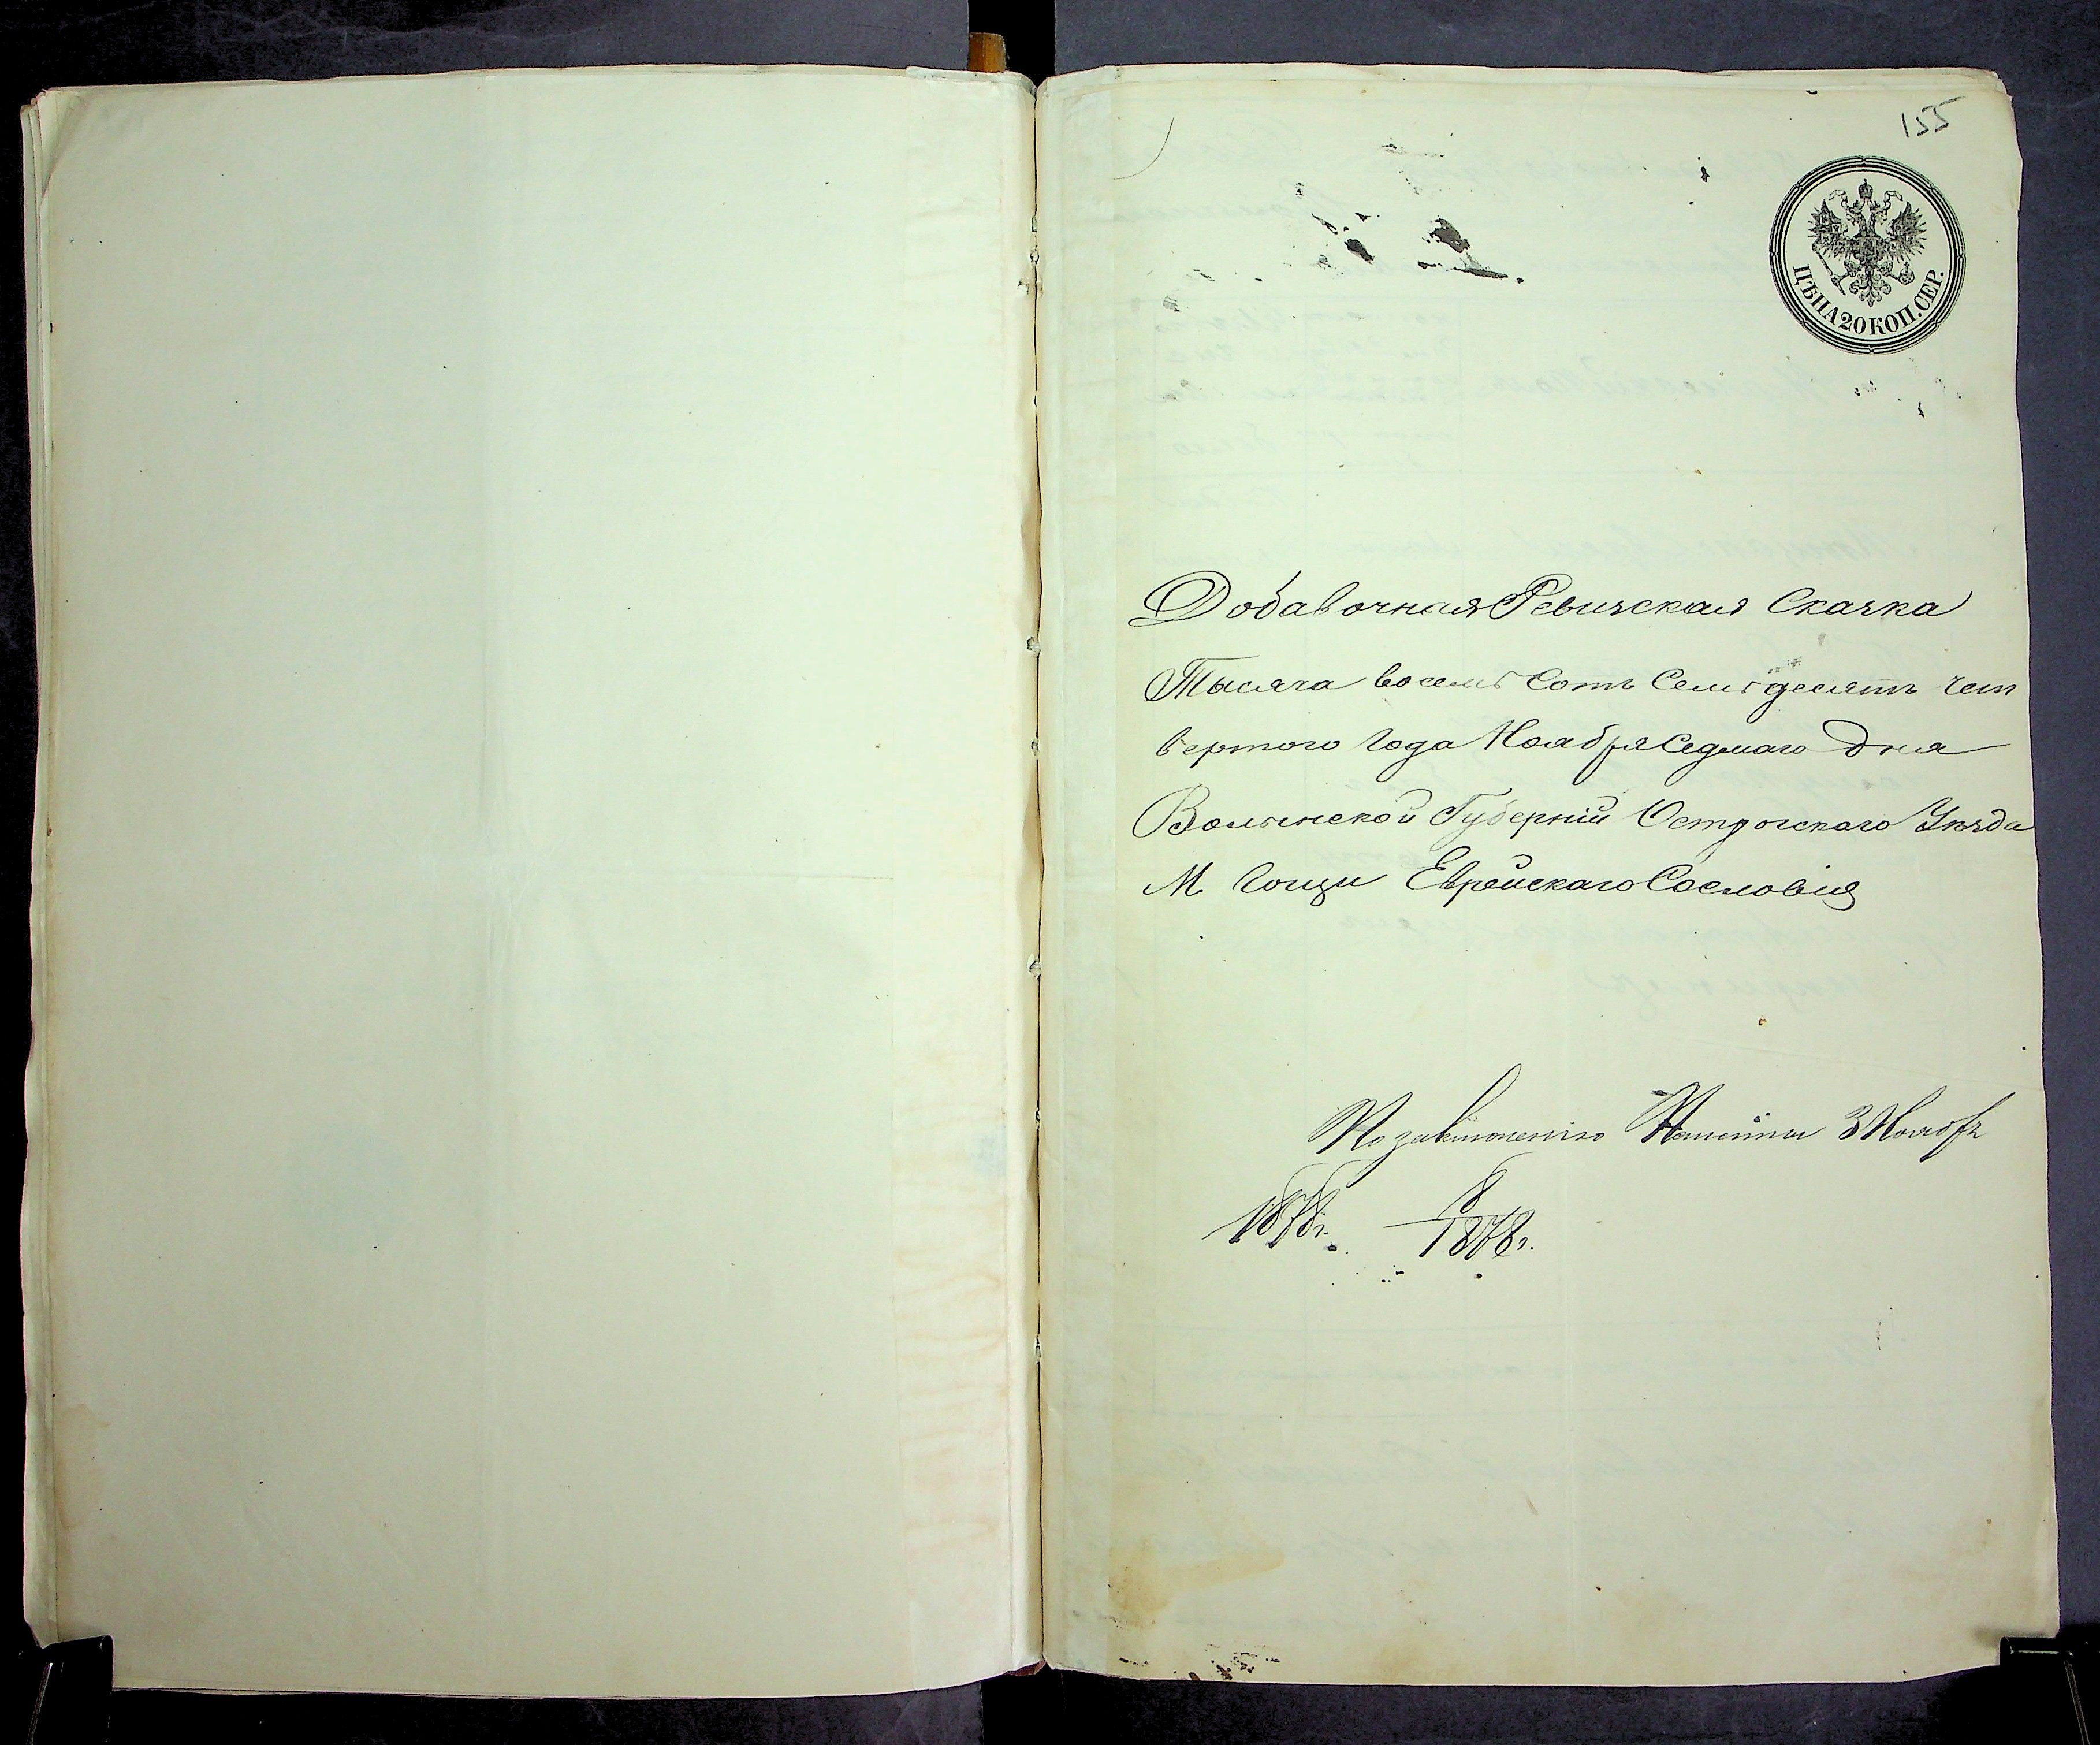 155
ЦѢНА 20 КОП. СЕР.
Добавочная Ревизская Сказка
Тысяча восемь Сотъ Семьдесятъ чет
вертого Года Ноября Седмаго Дня
Волынской Губерніи Острогскаго Уѣзда
М. Гощи Еврейскаго Сословія
По заключенію Палаты 3 Нояб
1878г. 8/1878г.